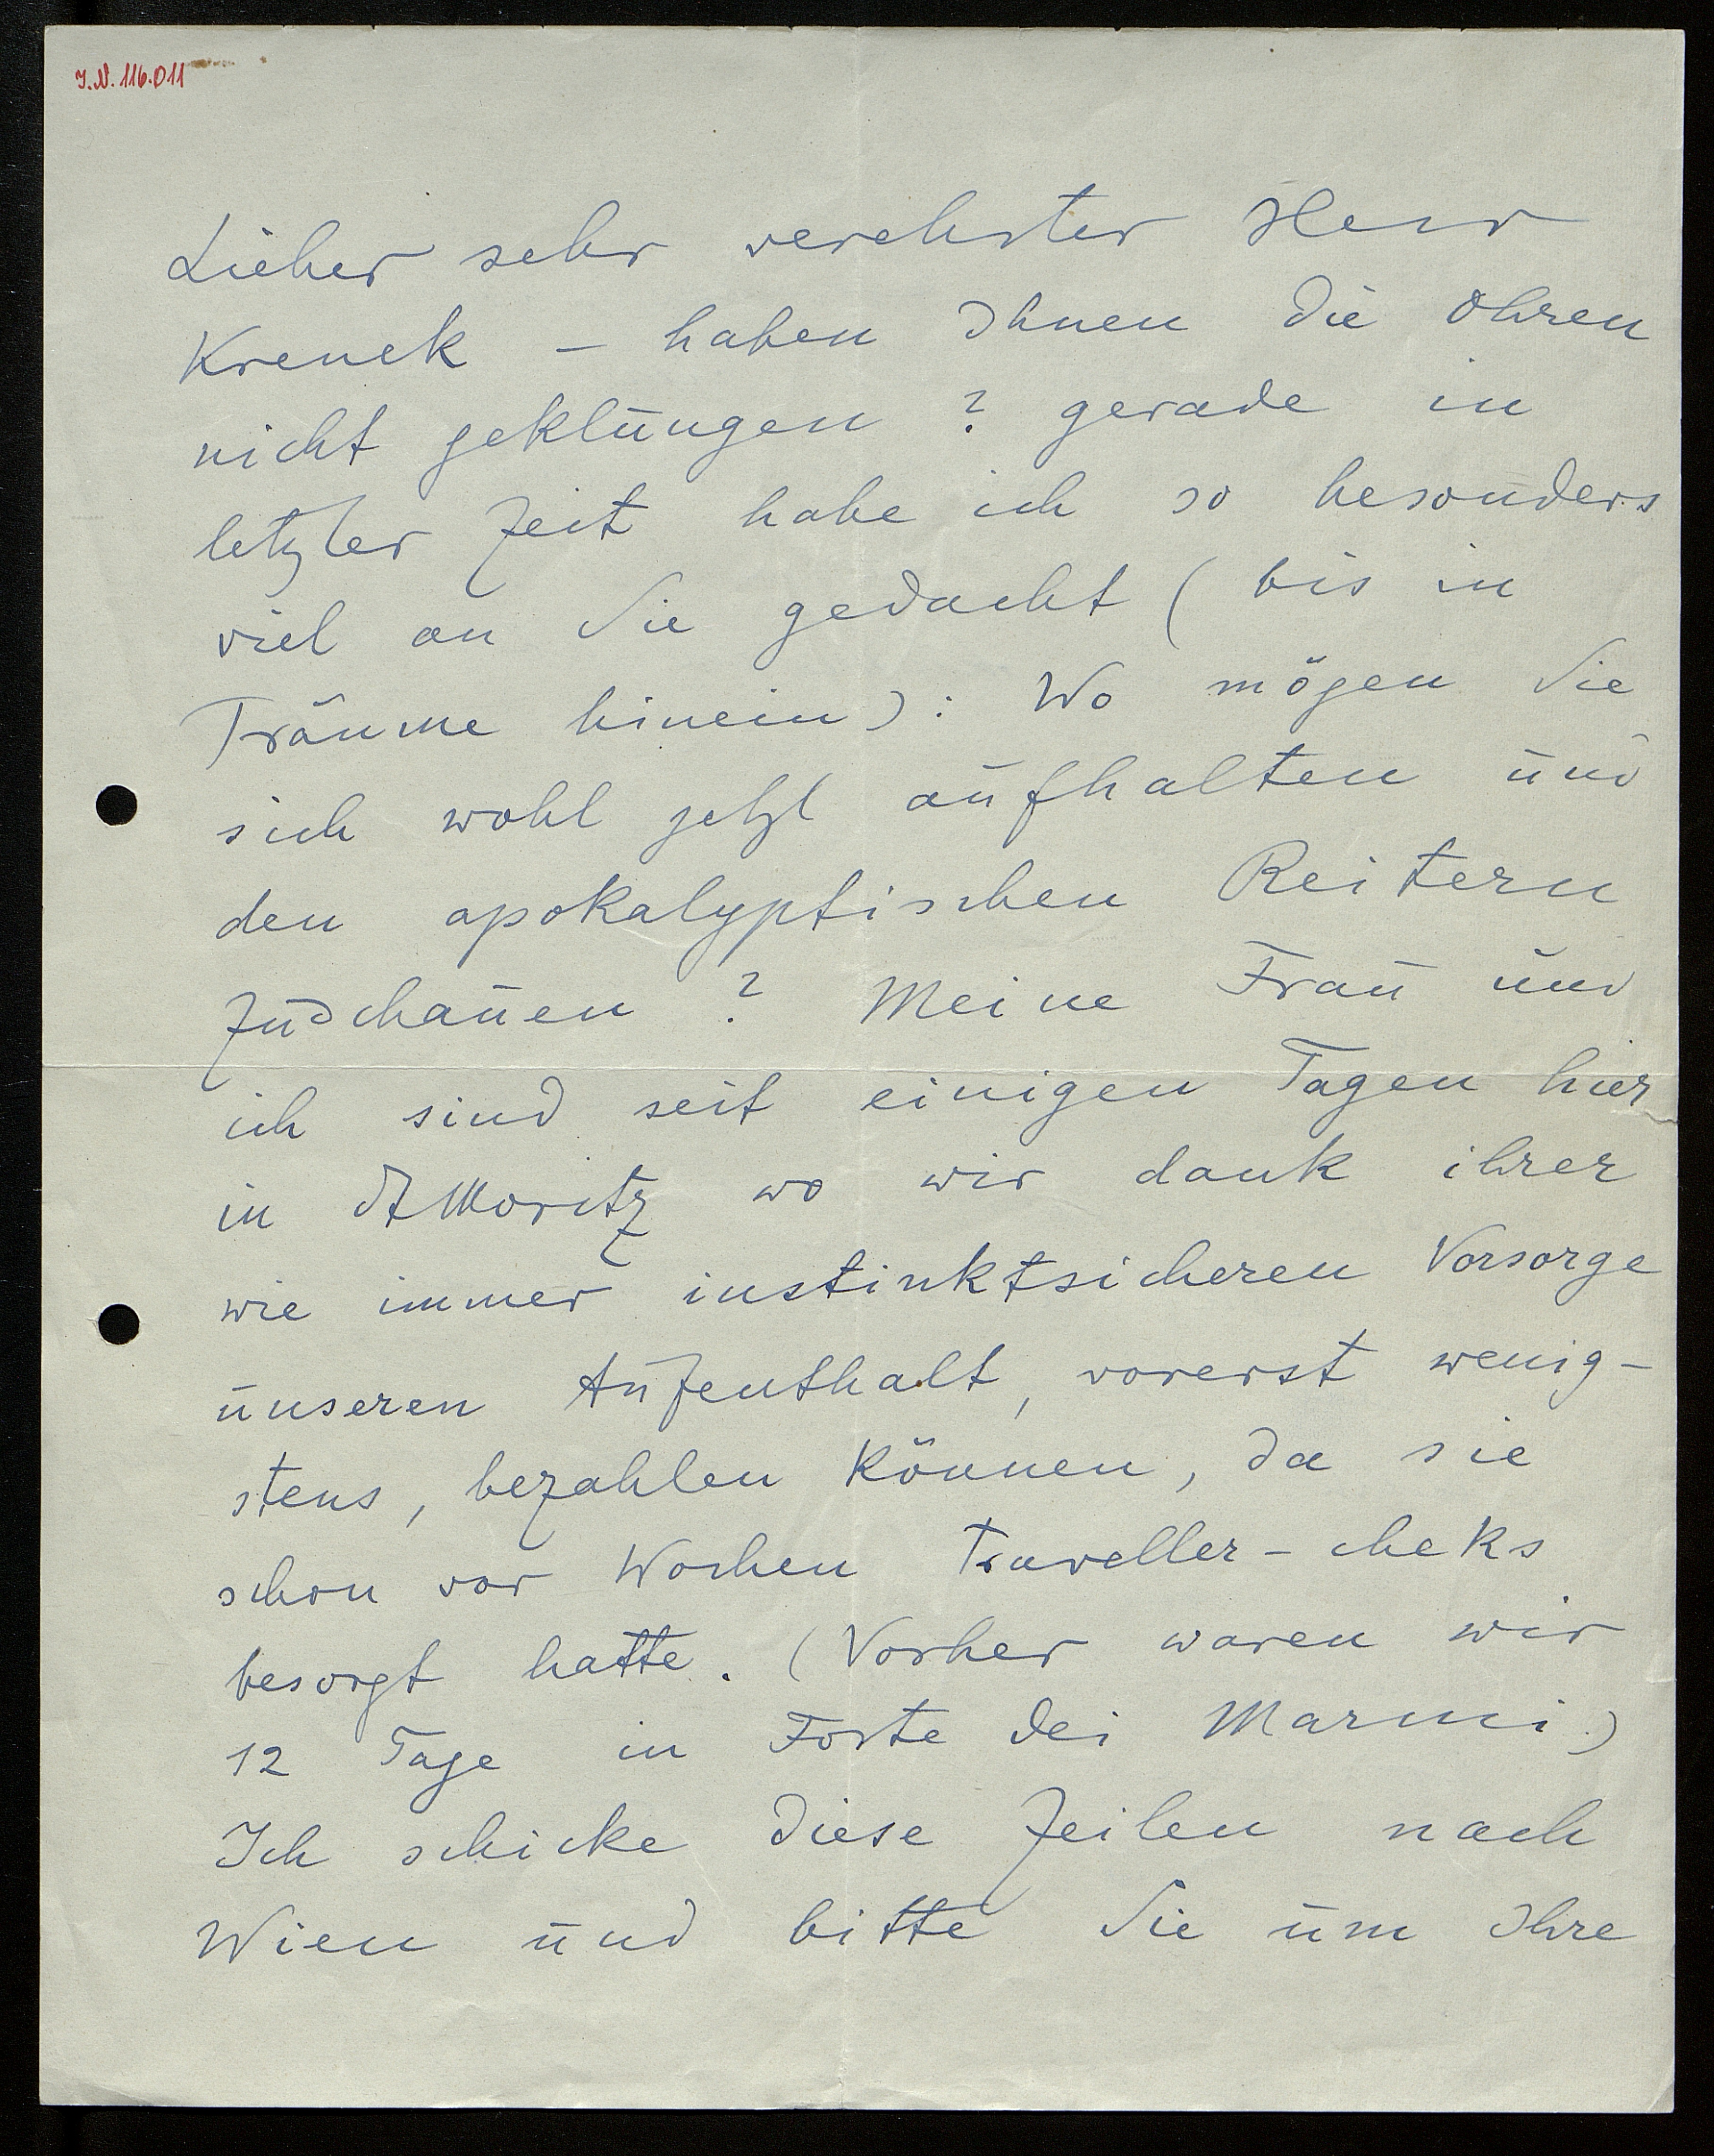 I.N. 116.011
Lieber sehr verehrter Herr
Krenek – haben Ihnen die Ohren
nicht geklungen ? gerade in
letzter Zeit habe ich so besonders
viel an Sie gedacht ( bis in
Träume hinein ) : Wo mögen Sie
sich wohl jetzt aufhalten und
den apokalyptischen Reitern
zuschauen ? Meine Frau und
ich sind seit einigen Tagen hier
in St Moritz wo wir dank ihrer
wie immer instinktsicheren Vorsorge
unseren Aufenthalt, vorerst wenig-
stens, bezahlen können, da sie
schon vor Wochen Traveller-cheks
besorgt hatte. (Vorher waren wir
12 Tage in Forte dei Marmi.)
Ich schicke diese Zeilen nach
Wien und bitte Sie um Ihre